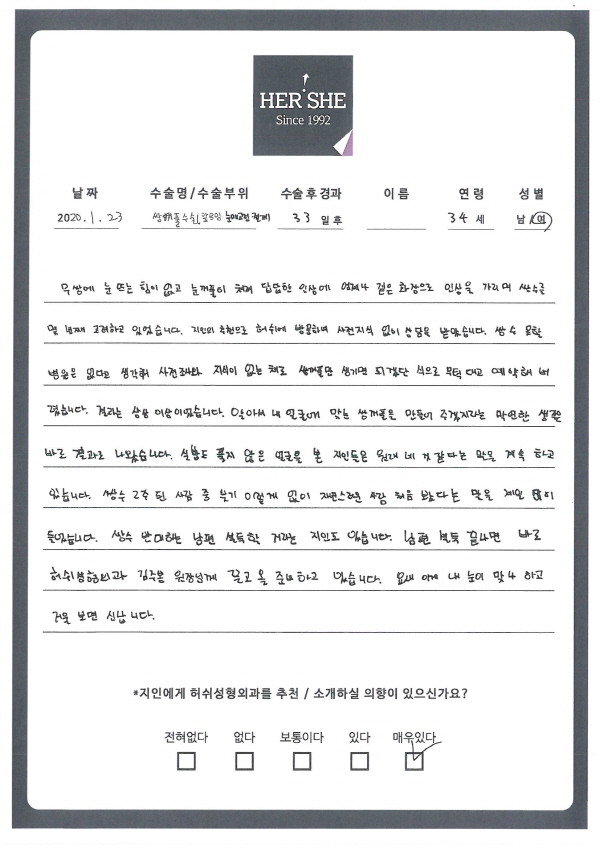 HER SHE
Since 1992
날짜 수술명/수술부위 수술후경과 이름 연령 성별
2020. 1. 23 쌍꺼풀수술 눈매교정 33 일후 34 세 남/여
무쌍에 눈 뜨는 힘이 없고 눈꺼풀이 쳐져 답답한 인상에 언제나 짙은 화장으로 인상을 가리며 쌍수를
몇 년째 고려하고 있었습니다. 지인의 추천으로 허쉬에 방문하여 사전지식 없이 상담을 받았습니다. 쌍수 못할
병원은 없다고 생각해 사전조사와 지식이 없는 채로 쌍꺼풀만 생기면 되겠단 식으로 무턱대고 예약해 버
렸습니다. 결과는 상상 이상이었습니다. 알아서 내 얼굴에 맞는 쌍꺼풀을 만들어 주겠지라는 막연한 생각은
바로 결과로 나왔습니다. 실밥도 풀지 않은 얼굴을 본 지인들은 원래 네 것 같다는 말을 계속 하고
있습니다. 쌍수 2주 된 사람 중 붓기 이렇게 없이 자연스러운 사람 처음 봤다는 말을 제일 많이
들었습니다. 쌍수 반대하는 남편 설득할 거라는 지인도 있습니다. 남편 설득 끝나면 바로
허쉬성형외과 김주용 원장님께 끌고 올 준비하고 있습니다. 요새 이게 내 눈이 맞나 하고
거울 보면 신납니다.
*지인에게 허쉬성형외과를 추천 / 소개하실 의향이 있으신가요?
전혀없다 없다 보통이다 있다 매우있다